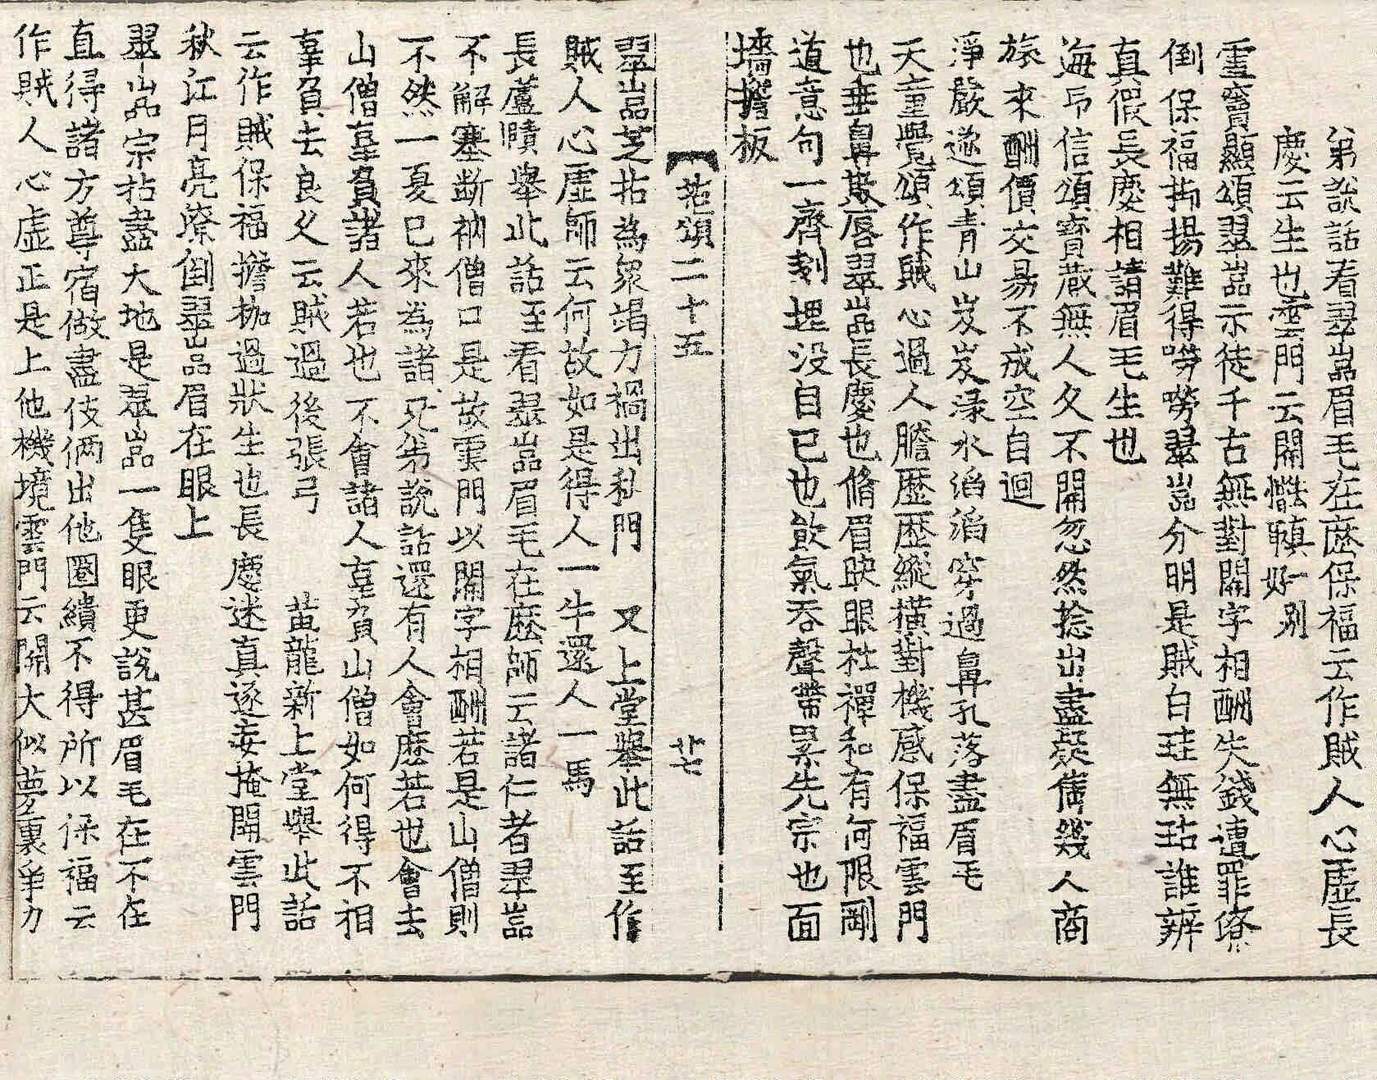 弟說話看翠嵓眉毛在麽保福云作賊人心虛長
慶云生也雲門云開 好 別
雪竇顯頌翠嵓示徒千古無對關字相酬失錢遭罪潦
倒保福抑揚難得嘮嘮翠嵓分明是賊白珪無玷誰辨
真假長慶相諳眉毛生也
海印信頌寶蔵無人久不開忽然捴出盡疑 幾人商
旅來酬價交易不成空自迴
淨嚴遂頌青山岌岌渌水滔滔穿過鼻孔落盡眉毛
天童覺頌作賊心過人膽歷歷縱橫對機感保福雲門
也垂鼻欺唇翠嵓長慶也脩眉映眼杜禪和有何限剛
道意句一齊剗埋没自已也飲氣吞聲帶累先宗也面
墻擔板
拈頌二十五 廿七
翠嵓芝拈為衆竭力禍出私門 又上堂舉此話至作
賊人心虛師云何故如是得人一牛還人一馬
長蘆賾舉此話至看翠嵓眉毛在麽師云諸仁者翠嵓
不解塞断衲僧口是故雲門以關字相酬若是山僧則
不然一夏已來為諸兄弟說話還有人會麽若也會去
山僧辜負諸人若也不會諸人辜負山僧如何得不相
辜負去良久云賊過後張弓 黄龍新上堂舉此話
云作賊保福擔枷過狀生也長慶迷真逐妄掩開雲門
秋江月亮潦倒翠嵓眉在眼上
翠嵓宗拈盡大地是翠嵓一隻眼更說甚眉毛在不在
直得諸方尊宿做盡伎倆出他圈繢不得所以保福云
作賊人心虛正是上他機境雲門云關大似夢裏爭力